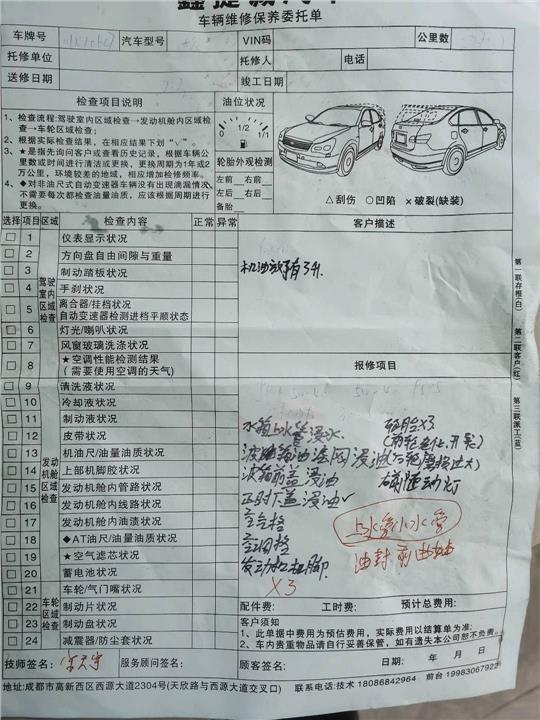 车辆维修保养委托单
车牌号 汽车型号 VIN码 公里数
托修单位 托修人 电话
送修日期 竣工日期
检查项目说明
1、检查流程:驾驶室内区域检查→发动机舱内区域检查→车轮区域检查;
2、根据实际检查结果,在相应结果下划“√”。
3、★是指先询问客户或查看历史记录,根据车辆公里数或时间进行清洁或更换,更换周期为1年或2万公里,环境较差的地域,相应增加检修频率。
4、◆对非油尺式自动变速器车辆没有出现滴漏情况,不需要每次都检查油量油质,应该根据周期进行更换。
油位状况
0 1/2 1/1
轮胎外观检测
左前 右前
左后 右后
备胎
△刮伤 ○凹陷 ×破裂(缺装)
选择 项目 区域 检查内容 正常 异常
驾驶室内区域检查
1 仪表显示状况
2 方向盘自由间隙与重量
3 制动踏板状况
4 手刹状况
5 离合器/挂档状况
自动变速器检测进档平顺状态
6 灯光/喇叭状况
7 风窗玻璃洗涤状况
8 ★空调性能检测结果
(需要使用空调的天气)
发动机舱区域检查
9 清洗液状况
10 冷却液状况
11 制动液状况
12 皮带状况
13 机油尺/油量油质状况
14 上部机脚胶状况
15 发动机舱内管路状况
16 发动机舱内线路状况
17 发动机舱内油渍状况
18 ◆AT油尺/油量油质状况
19 ★空气滤芯状况
20 蓄电池状况
车轮区域检查
21 车轮/气门嘴状况
22 制动片状况
23 制动盘状况
24 减震器/防尘套状况
客户描述
机油放了有3升.
报修项目
水箱上水管浸水
波箱前盖浸油
正时广盖浸油✓
空气格
空调格
发动机机脚
X3
轮胎X3
上水管小水管
油封 前曲轴
配件费: 工时费: 预计总费用:
客户须知
1、此单据中费用为预估费用,实际费用以结算单为准;
2、车内贵重物品请自行妥善保管,如有遗失本公司恕不负责。
技师签名: 服务顾问签名: 顾客签名: 日期: 年 月 日
地址:成都市高新西区西源大道2304号(天欣路与西源大道交叉口) 联系电话:技术 18086842964 前台 19983067922
第一联存根(白)
第二联客户(红)
第三联派工(蓝)